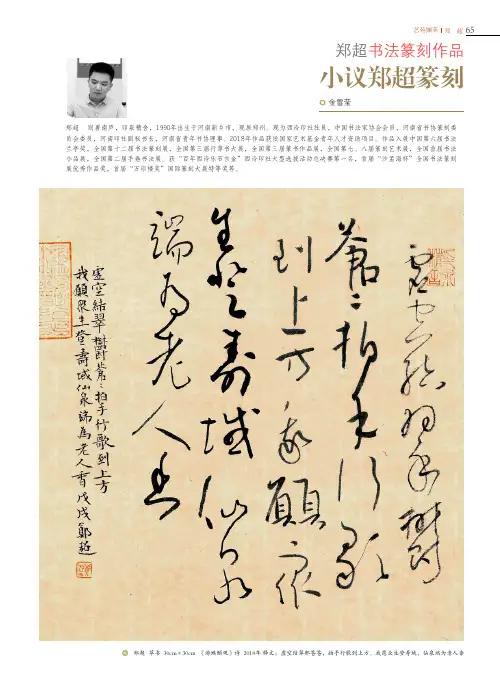 艺苑撷英 | 郑 超 65
郑超书法篆刻作品
小议郑超篆刻
金雪莹
郑超 别署南庐,印泉精舍,1990年出生于河南新乡市,现居郑州。现为西泠印社社员,中国书法家协会会员,河南省书协篆刻委
员会委员,河南印社副秘书长,河南省青年书协理事。2018年作品获批国家艺术基金青年人才资助项目。作品入展中国第六届书法
兰亭奖,全国第十二届书法篆刻展,全国第三届行草书大展,全国第三届篆书作品展,全国第七、八届篆刻艺术展,全国首届书法
小品展,全国第二届手卷书法展。获“百年西泠乐石吉金”西泠印社大型选拔活动总决赛第一名,首届“沙孟海杯”全国书法篆刻
展优秀作品奖,首届“万印楼奖”国际篆刻大展特等奖等。
虚空结翠鬱
蒼々拍手行歌
到上方我願众
生登壽域仙泉
端为老人香
虚空結翠鬱蒼々拍手行歌到上方
我願眾生登壽域仙泉端為老人香戊戌鄭超
郑超 草书 34cm×34cm 诗 2018年 释文:虚空结翠郁苍苍,拍手行歌到上方。我愿众生登寿域,仙泉端为老人香